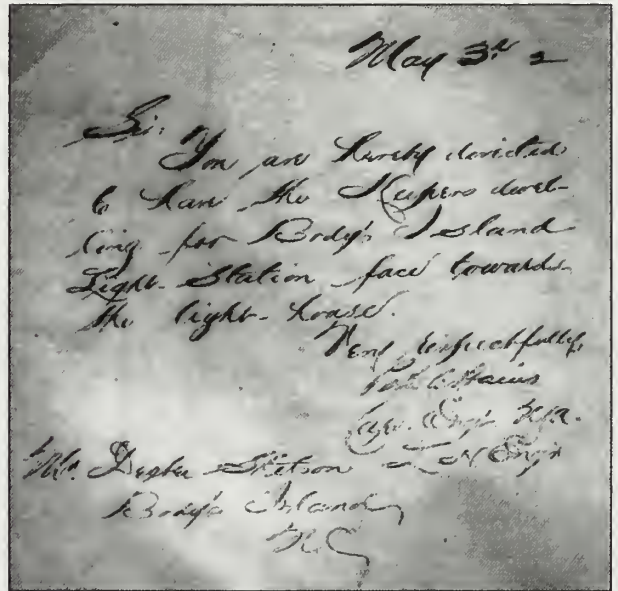 May 3d 2
Sir,
You are hereby directed
to have the Keepers dwel-
ling for Body's Island
Light-Station face towards
the light-house.
Very respectfully,
Peter C. Hains
Capt. Engrs. U.S.A.
L H Engr
Mr. Dexter Stetson
Body's Island,
N.C.